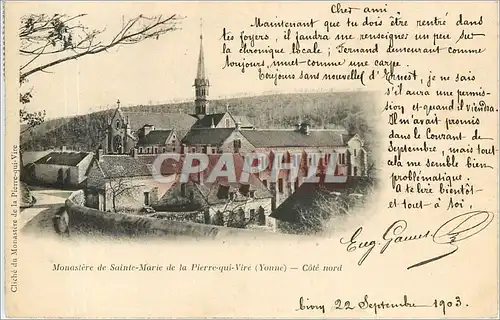 Cher ami
Maintenant que tu dois être rentré dans
tes foyers, il faudra me renseigner un peu sur
la chronique locale; Fernand demeurant comme
toujours, muet comme une carpe.
Toujours sans nouvelles d'Ernest, je ne sais
s'il aura une permis-
sion et quand il viendra.
Il m'avait promis
dans le Courant de
Septembre, mais tout
cela me semble bien
problématique.
A te lire bientôt
et tout à toi.
Eug.
CPARAMA
Monastère de Sainte-Marie de la Pierre-qui-Vire (Yonne) — Côté nord
Cliché du Monastère de la Pierre-qui-Vire
22 Septembre 1903.